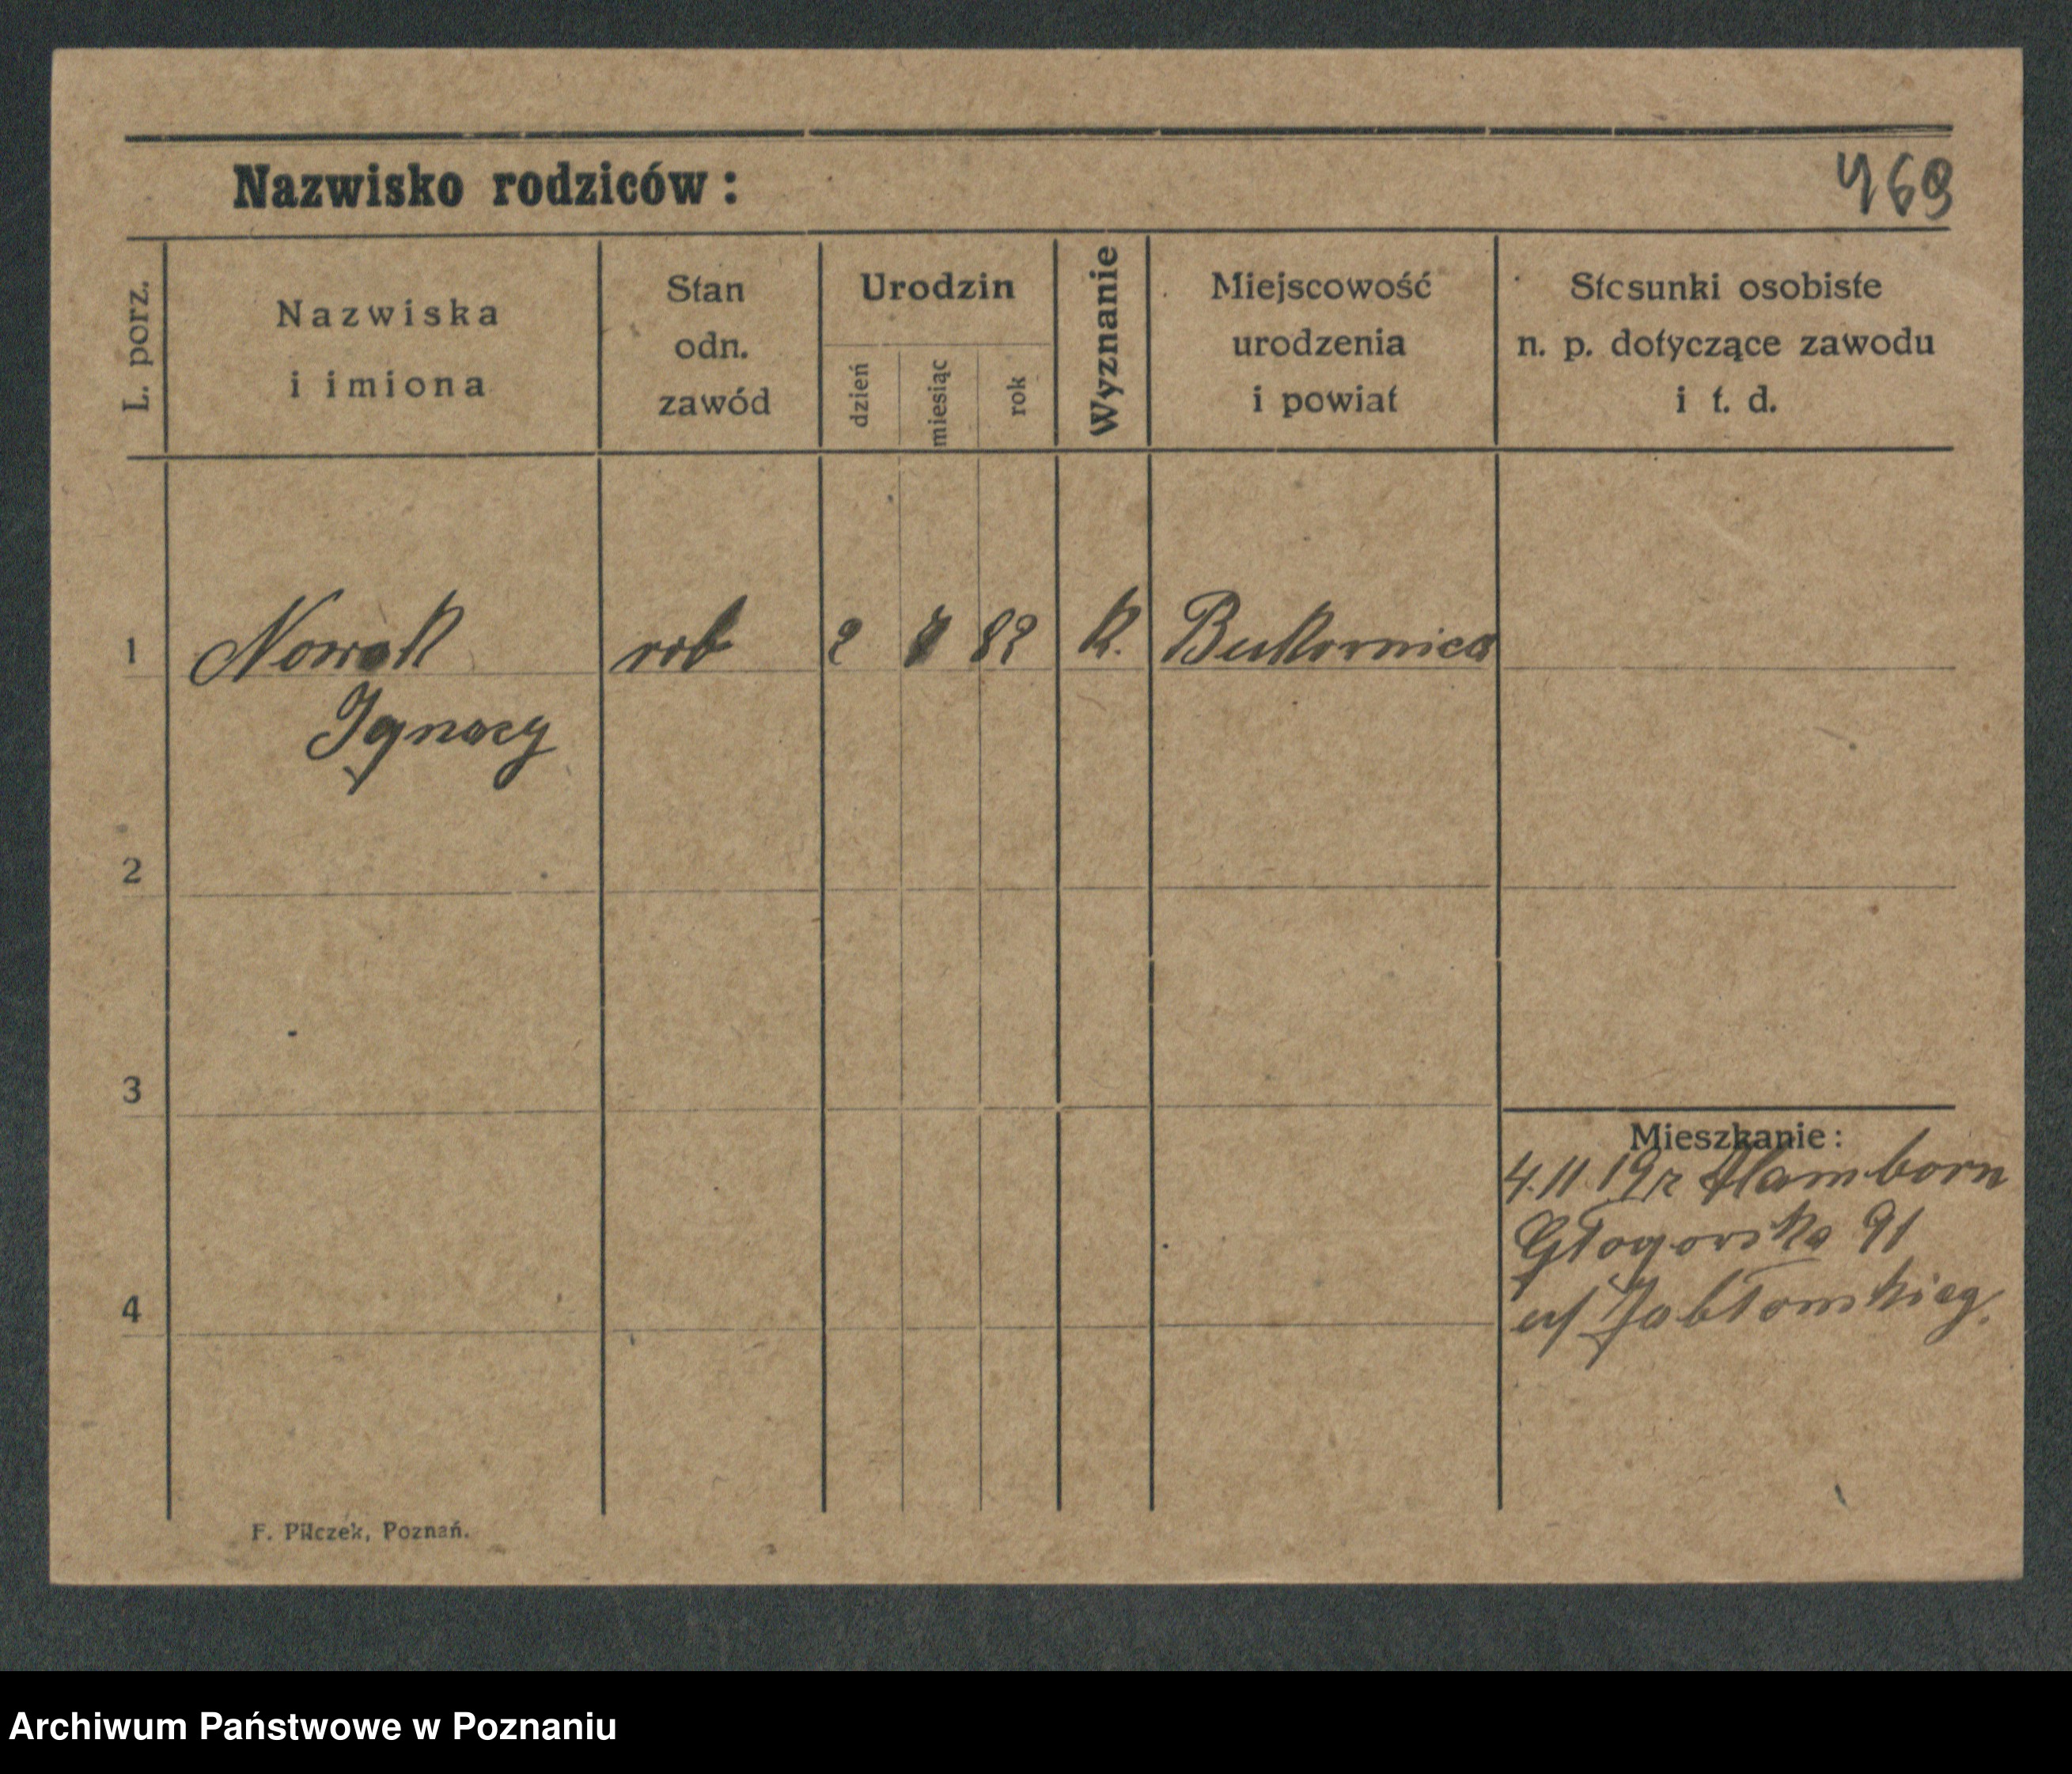 Nazwisko rodziców:
469
L. porz.
Nazwiska
i imiona
Stan
odn.
zawód
Urodzin
dzień
miesiąc
rok
Wyznanie
Miejscowość
urodzenia
i powiat
Stosunki osobiste
n. p. dotyczące zawodu
i t. d.
1
Nowak
Ignacy
rob
2
82
K.
Bukownica
2
3
4
Mieszkanie:
4.11.19 r Hamborn
Głogowska 91
u/ Jabłomskieg.
F. Pilczek, Poznań.
Archiwum Państwowe w Poznaniu